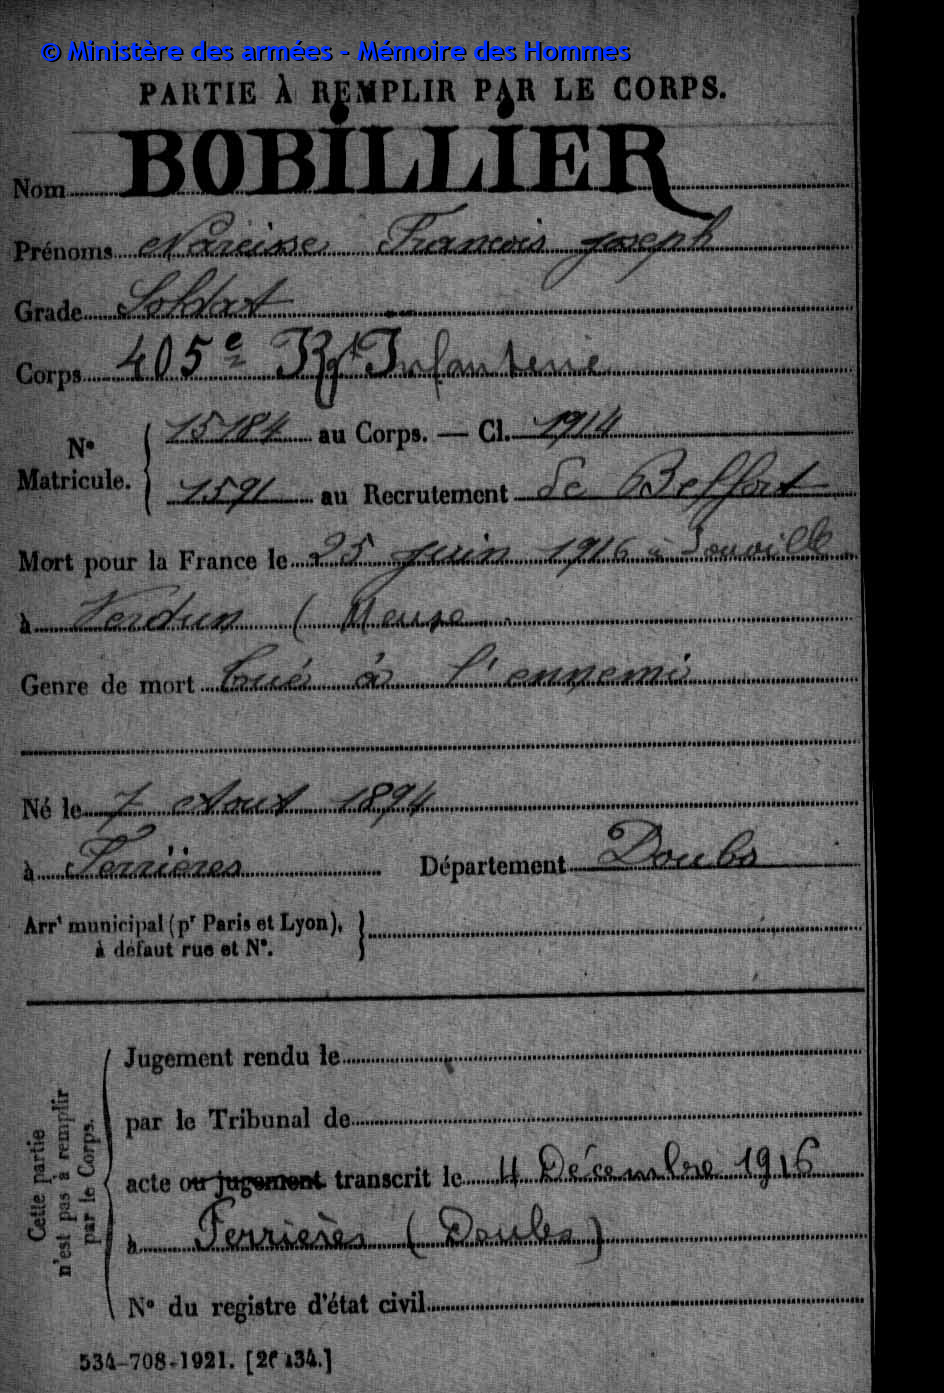 © Ministère des armées - Mémoire des Hommes
PARTIE À REMPLIR PAR LE CORPS.
Nom BOBILLIER
Prénoms Narcisse François Joseph
Grade Soldat
Corps 405e Rgt Infanterie
No Matricule. { 15184 au Corps. — Cl. 1914
1591 au Recrutement de Belfort
Mort pour la France le 25 juin 1916 à
à Verdun (Meuse
Genre de mort tué à l'ennemi
Né le 7 Aout 1894
à Ferrières Département Doubs
Arrt municipal (pr Paris et Lyon),
à défaut rue et No.
Cette partie
n'est pas à remplir
par le Corps.
Jugement rendu le
par le Tribunal de
acte ou jugement transcrit le 4 Décembre 1916
à Ferrières (Doubs)
No du registre d'état civil
534-708-1921. [26434.]